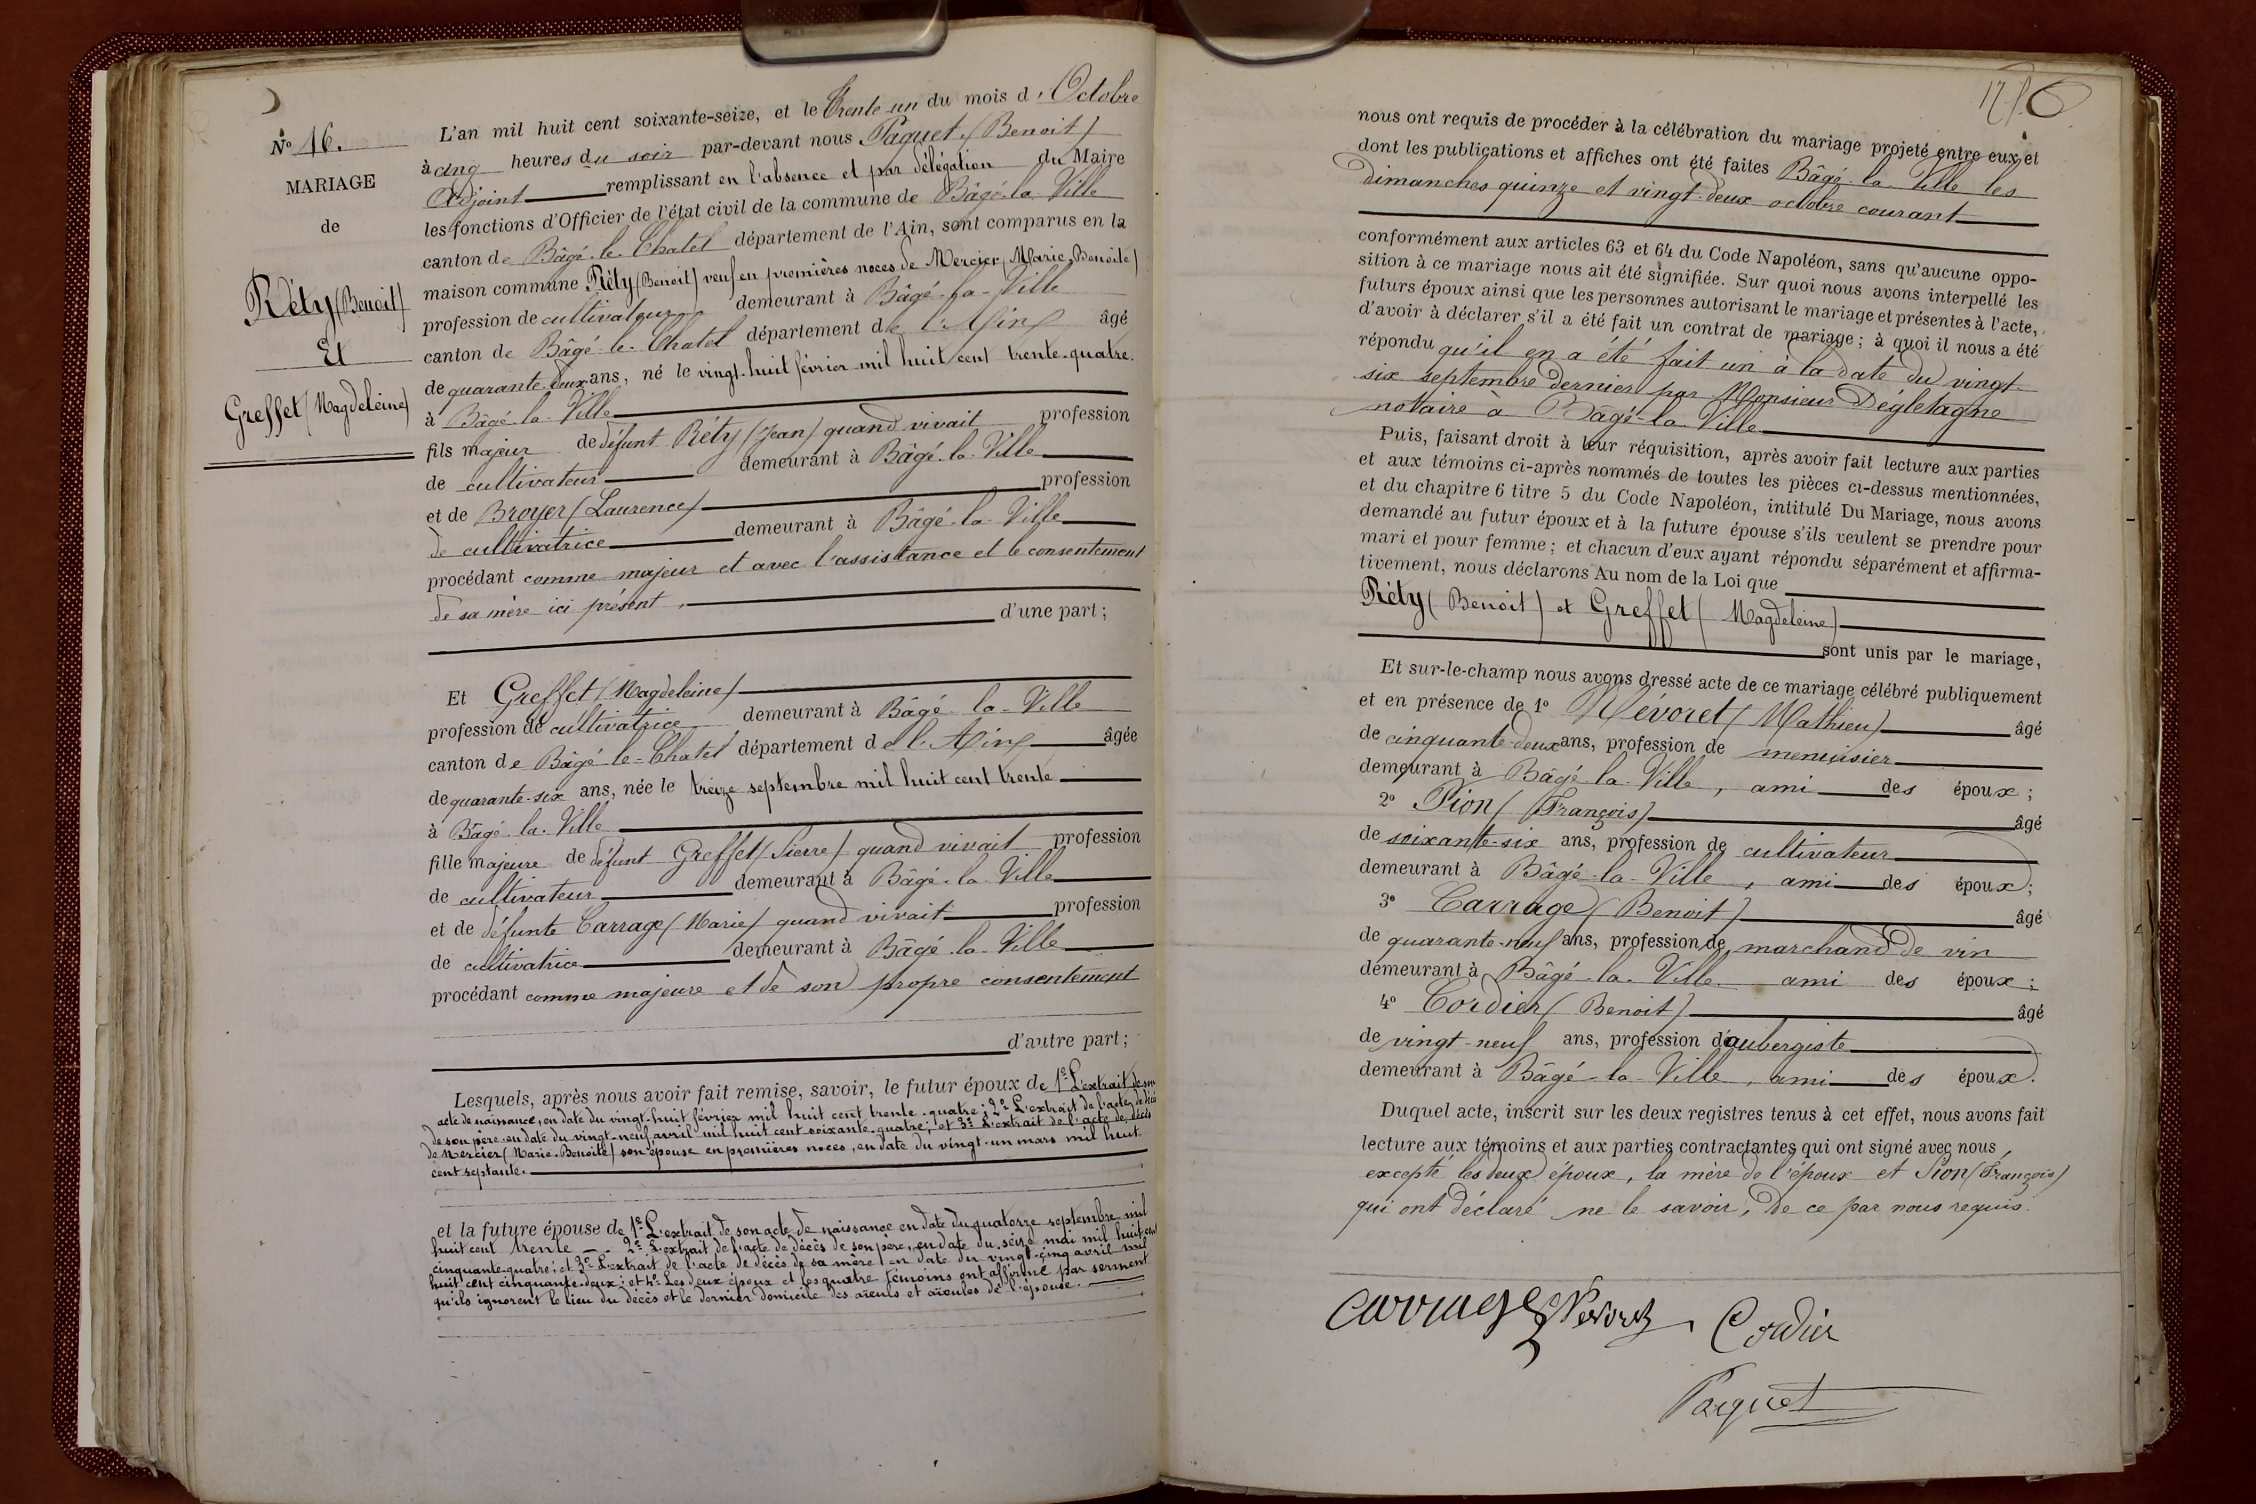 Nº 16.
MARIAGE
de
Réty (Benoit)
Et
Greffet (Magdeleine)
L'an mil huit cent soixante-seize, et le Trente-un du mois d'Octobre
à cinq heures du soir par-devant nous Paquet (Benoit)
Adjoint remplissant en l'absence et par délégation du Maire
les fonctions d'Officier de l'état civil de la commune de Bâgé-la-Ville
canton de Bâgé-le-Chatel département de l'Ain, sont comparus en la
maison commune Réty (Benoit) veuf en premières noces de Mercier (Marie-Benoîte)
profession de cultivateur demeurant à Bâgé-la-Ville
canton de Bâgé-le-Chatel département de l'Ain âgé
de quarante-deux ans, né le vingt-huit février mil huit cent trente-quatre
à Bâgé-la-Ville
fils majeur de défunt Réty (Jean) quand vivait profession
de cultivateur demeurant à Bâgé-la-Ville
et de Broyer (Laurence) profession
de cultivatrice demeurant à Bâgé-la-Ville
procédant comme majeur et avec l'assistance et le consentement
de sa mère ici présent.
d'une part;
Et Greffet (Magdeleine)
profession de cultivatrice demeurant à Bâgé-la-Ville
canton de Bâgé-le-Chatel département de l'Ain âgée
de quarante-six ans, née le treize septembre mil huit cent trente
à Bâgé-la-Ville
fille majeure de défunt Greffet (Pierre) quand vivait profession
de cultivateur demeurant à Bâgé-la-Ville
et de défunte Carrage (Marie) quand vivait profession
de cultivatrice demeurant à Bâgé-la-Ville
procédant comme majeure et de son propre consentement
d'autre part;
Lesquels, après nous avoir fait remise, savoir, le futur époux de 1º L'extrait de son
acte de naissance, en date du vingt-huit février mil huit cent trente-quatre; 2º L'extrait de l'acte de décès
de son père en date du vingt-neuf avril mil huit cent soixante-quatre; et 3º L'extrait de l'acte de décès
de Mercier (Marie-Benoîte) son épouse en premières noces, en date du vingt-un mars mil huit
cent septante.
et la future épouse de 1º L'extrait de son acte de naissance en date du quatorze septembre mil
huit cent trente 2º L'extrait de l'acte de décès de son père, en date du seize mai mil huit cent
cinquante-quatre; et 3º L'extrait de l'acte de décès de sa mère, en date du vingt-cinq avril mil
huit cent cinquante-deux; et 4º Les deux époux et les quatre témoins ont affirmé par serment
qu'ils ignorent le lieu du décès et le dernier domicile des aïeuls et aïeules de l'épouse.
nous ont requis de procéder à la célébration du mariage projeté entre eux et
dont les publications et affiches ont été faites Bâgé-la-Ville les
dimanches quinze et vingt-deux octobre courant
conformément aux articles 63 et 64 du Code Napoléon, sans qu'aucune oppo-
sition à ce mariage nous ait été signifiée. Sur quoi nous avons interpellé les
futurs époux ainsi que les personnes autorisant le mariage et présentes à l'acte,
d'avoir à déclarer s'il a été fait un contrat de mariage; à quoi il nous a été
répondu qu'il en a été fait un à la date du vingt-
six septembre dernier par Monsieur Dégletagne
notaire à Bâgé-la-Ville
Puis, faisant droit à leur réquisition, après avoir fait lecture aux parties
et aux témoins ci-après nommés de toutes les pièces ci-dessus mentionnées,
et du chapitre 6 titre 5 du Code Napoléon, intitulé Du Mariage, nous avons
demandé au futur époux et à la future épouse s'ils veulent se prendre pour
mari et pour femme; et chacun d'eux ayant répondu séparément et affirma-
tivement, nous déclarons Au nom de la Loi que
Réty (Benoit) et Greffet (Magdeleine)
sont unis par le mariage,
Et sur-le-champ nous avons dressé acte de ce mariage célébré publiquement
et en présence de 1º Névoret (Mathieu) âgé
de cinquante-deux ans, profession de menuisier
demeurant à Bâgé-la-Ville, ami des époux;
2º Pion (François) âgé
de soixante-six ans, profession de cultivateur
demeurant à Bâgé-la-Ville, ami des époux;
3º Carrage (Benoit) âgé
de quarante-neuf ans, profession de marchand de vin
demeurant à Bâgé-la-Ville ami des époux;
4º Cordier (Benoit) âgé
de vingt-neuf ans, profession d'aubergiste
demeurant à Bâgé-la-Ville, ami des époux.
Duquel acte, inscrit sur les deux registres tenus à cet effet, nous avons fait
lecture aux témoins et aux parties contractantes qui ont signé avec nous,
excepté les deux époux, la mère de l'époux et Pion (François)
qui ont déclaré ne le savoir, de ce par nous requis.
Carrage Névoret Cordier
Paquet